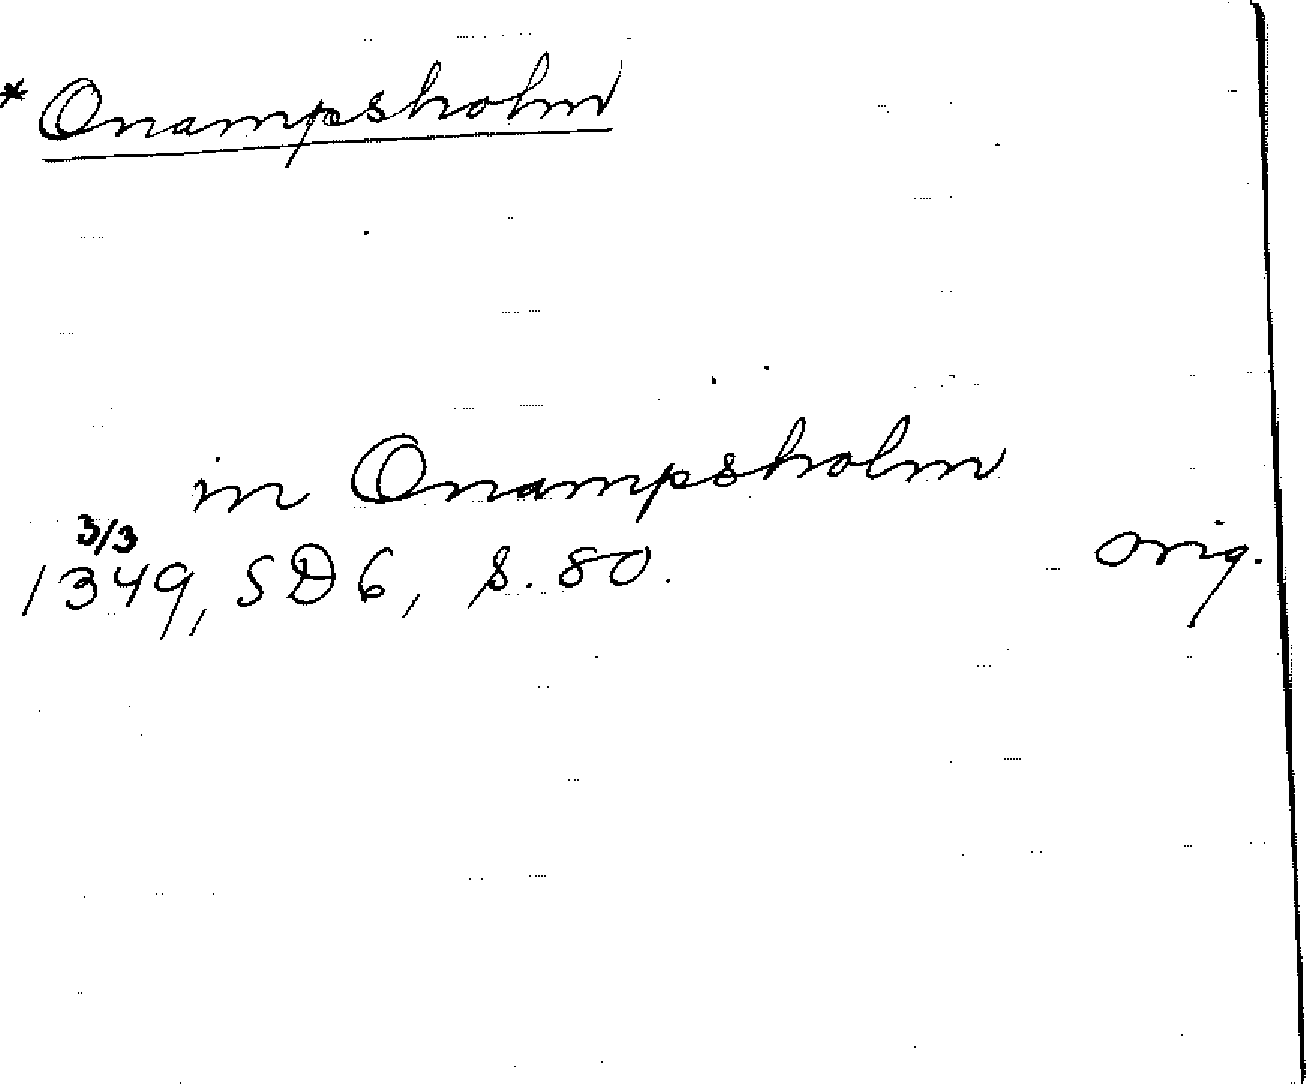 * Onampsholm
in Onampsholm
3/3
1349, SD 6, s. 80. orig.